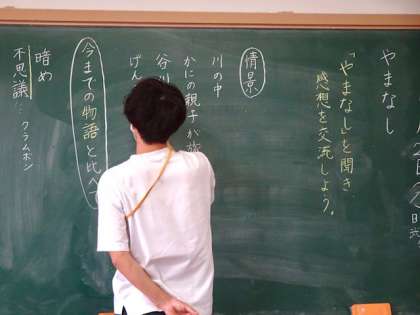 やまなし
「やまなし」を聞き、
感想を交流しよう。
情景
川の中
かにの親子が
谷川
げん
今までの物語と比べて
暗め
不思議
クラムボン